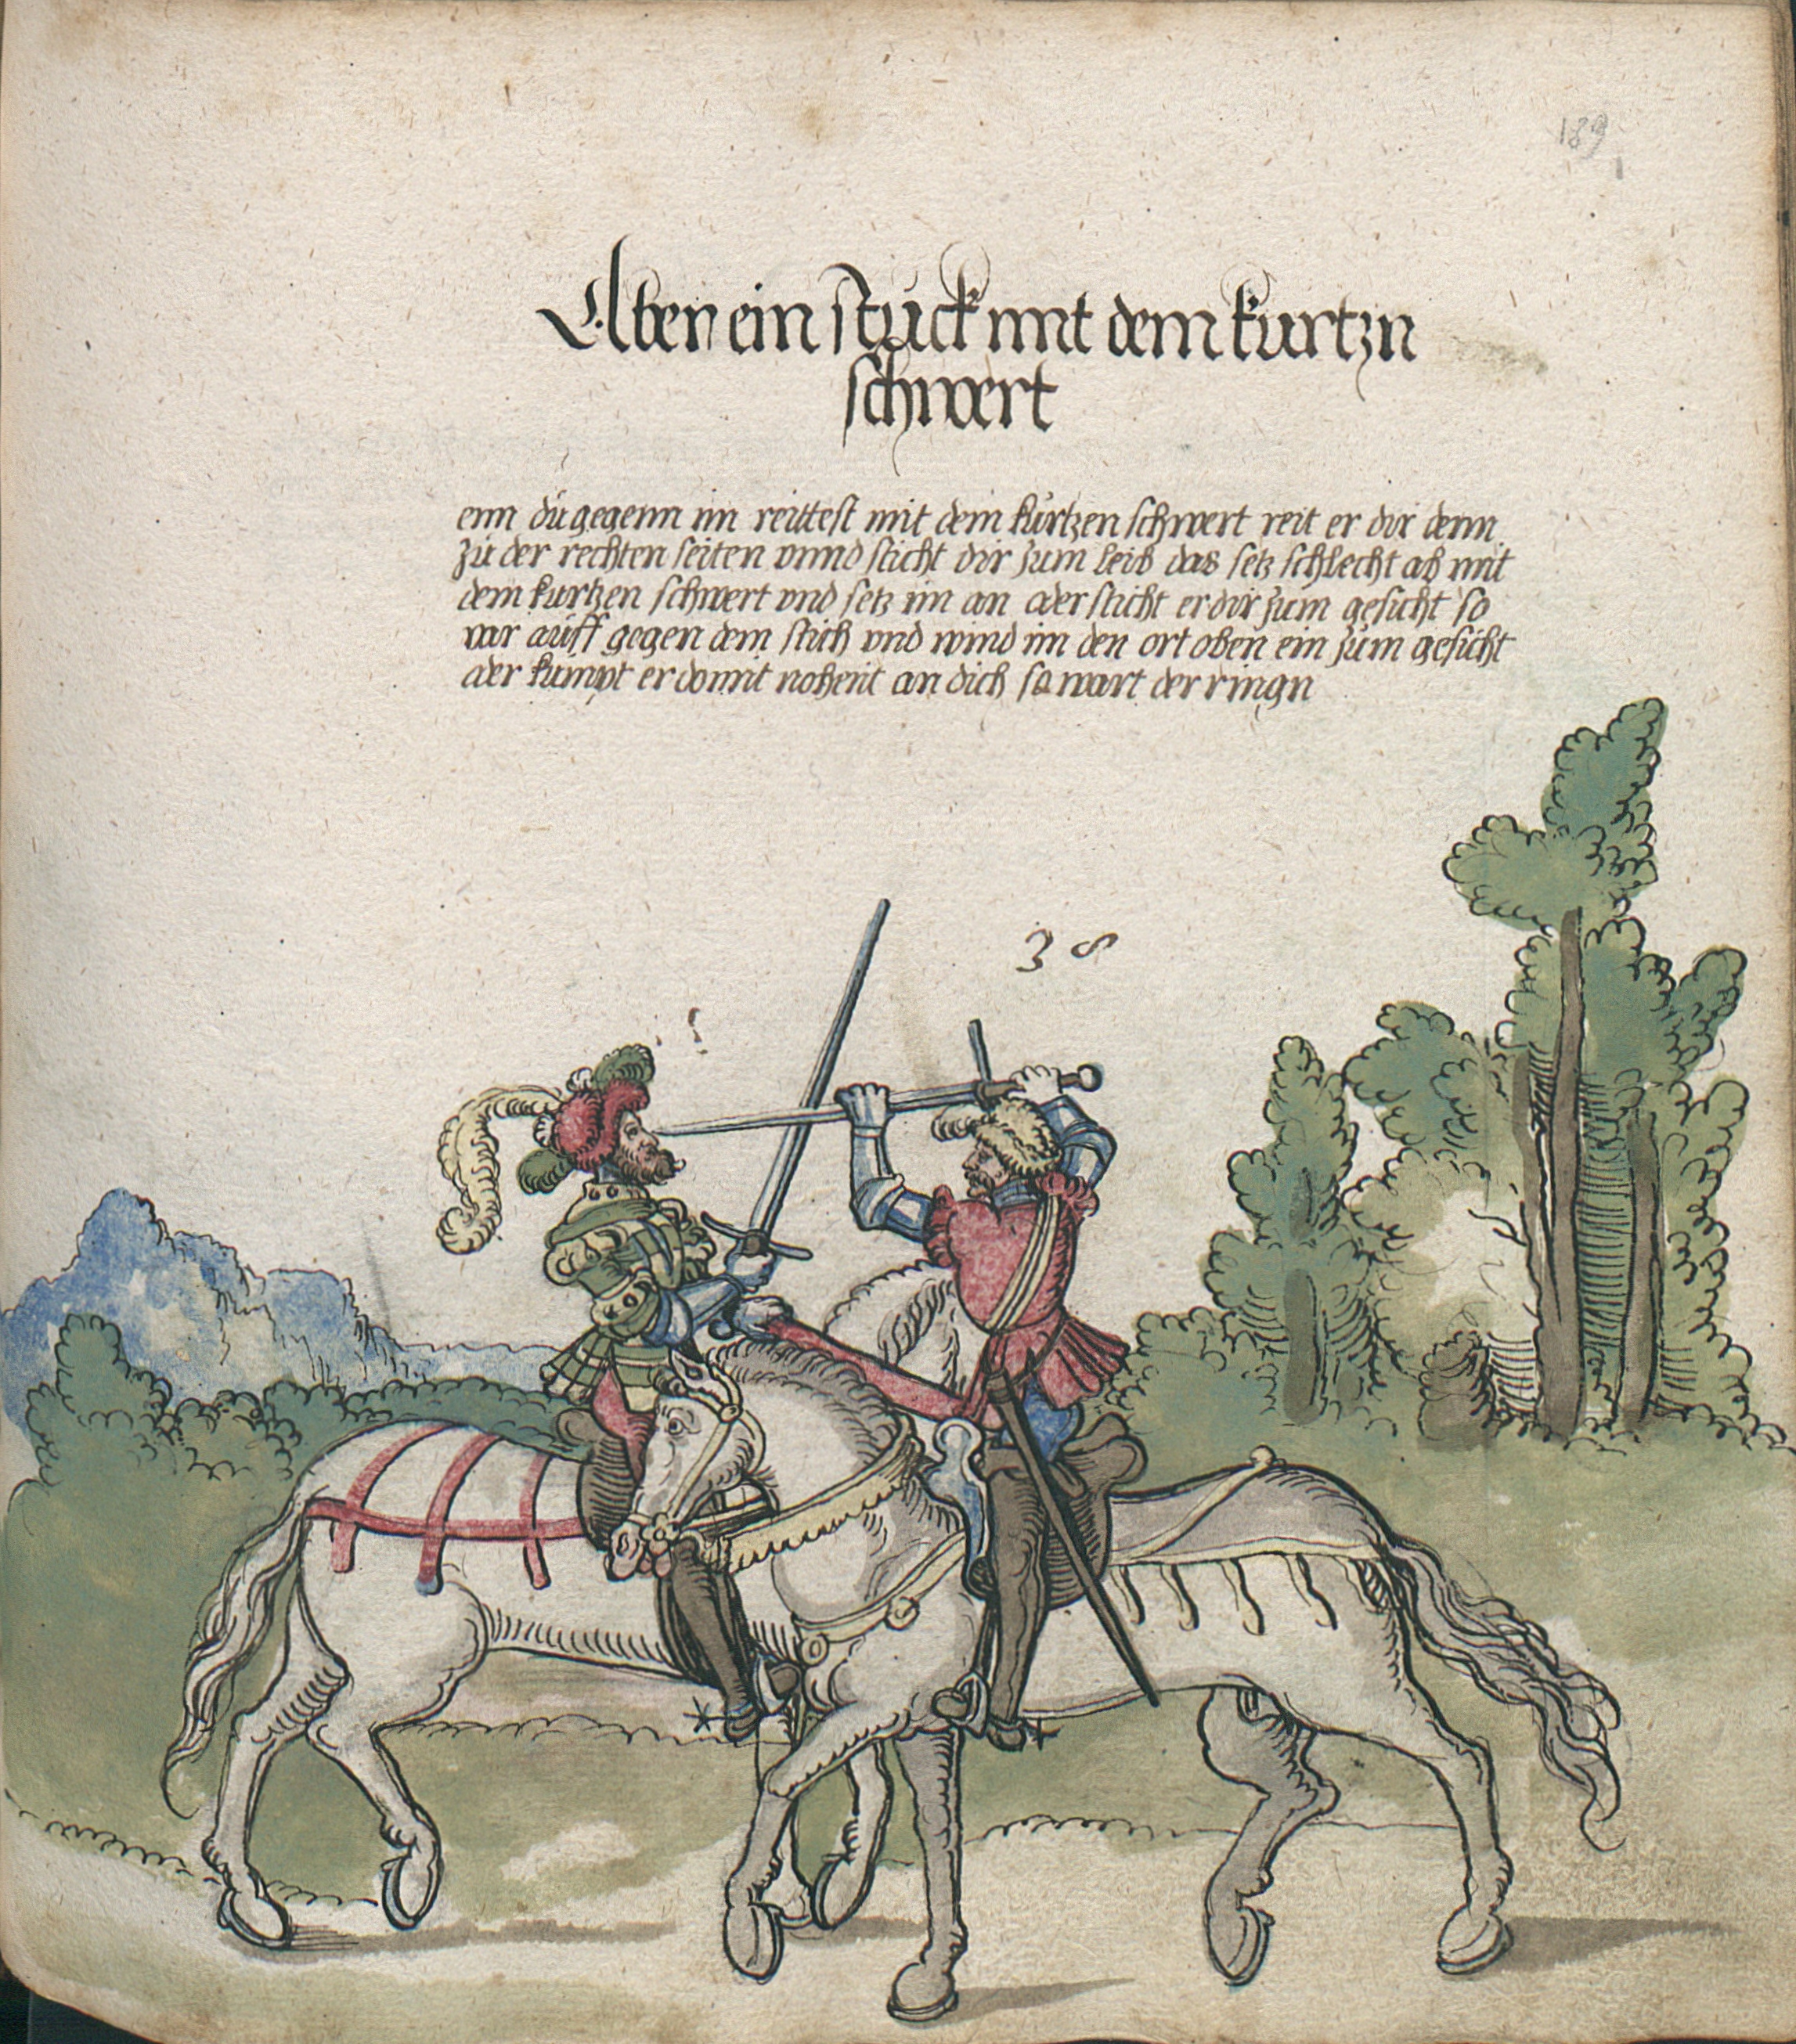 189
Aber ein stuck mit dem kurtzn
schwert
enn du gegenn im reittest mit dem kurtzen schwert reit er dir denn
zu der rechten seiten vnnd sticht dir zum leib das setz schlecht ab mit
dem kurtzen schwert vnd setz im an ader sticht er dir zum gesicht so
var auff gegen dem stich vnd wind im den ort oben ein zum gesicht
ader kumpt er domit nohent an dich so wart der ringn
38